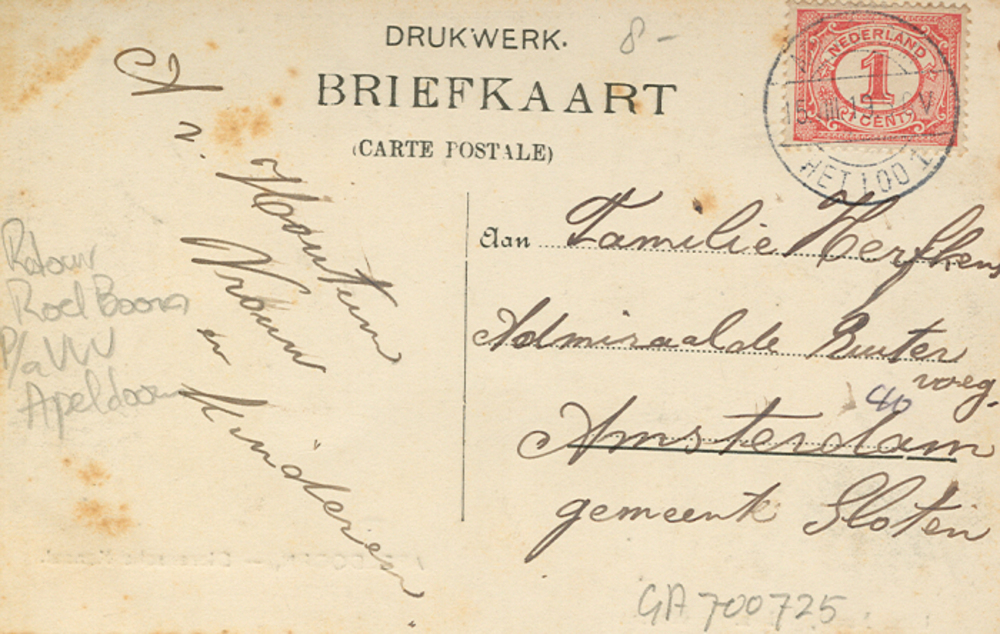 DRUKWERK.
8-
BRIEFKAART
(CARTE POSTALE)
NEDERLAND
1
CENT
HET LOO 1
A
v. Houten
Vrouw
en
Kinderen
Retour
Roel Booms
P/a VVV
Apeldoorn
Aan Familie Herfkens
Admiraal de Ruiter
weg
40
Amsterdam
gemeente Sloten
GA 700725